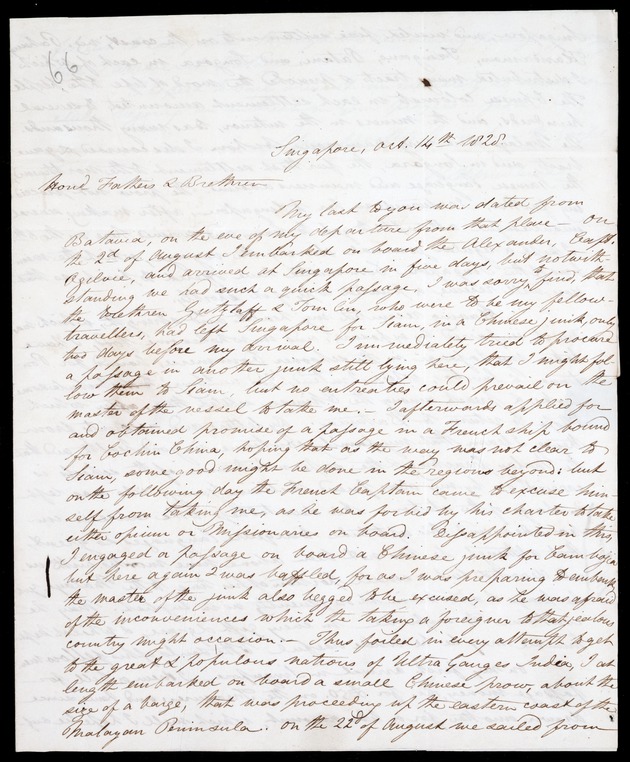 66
Singapore, Oct. 14th 1828.
Hond Fathers & Brethren
My last to you was dated from
Batavia, on the eve of my departure from that place – on
the 2d of August I embarked on board the Alexander, Capt.
Ogilvie, and arrived at Singapore in five days, but notwith-
standing we had such a quick passage, I was sorry to find, that
the brethren Gutzlaff & Tomlin, who were to be my fellow
travellers, had left Singapore for Siam, in a Chinese junk, only
two days before my arrival. I immediately tried to procure
a passage in another junk still lying here, that I might fol
low them to Siam, but no entreaties could prevail on the
master of the vessel to take me. – I afterwards applied for
and obtained promise of a passage in a French ship bound
for Cochin China, hoping that as the way was not clear to
Siam, some good might be done in the regions beyond: but
on the following day the French Captain came to excuse him-
self from taking me, as he was forbid by his charter to take
either opium or Missionaries on board. Disappointed in this,
I engaged a passage on board a Chinese junk for Camboja
but here again I was baffled, for as I was preparing to embark
the master of the junk also begged to be excused, as he was afraid
of the inconveniences which the taking a foreigner to that jealous
country might occasion. – Thus foiled in every attempt to get
to the great & populous nations of Ultra Ganges India, I at
length embarked on board a small Chinese prow, about the
size of a barge, that was proceeding up the eastern coast of the
Malayan Peninsula. On the 22d of August we sailed from